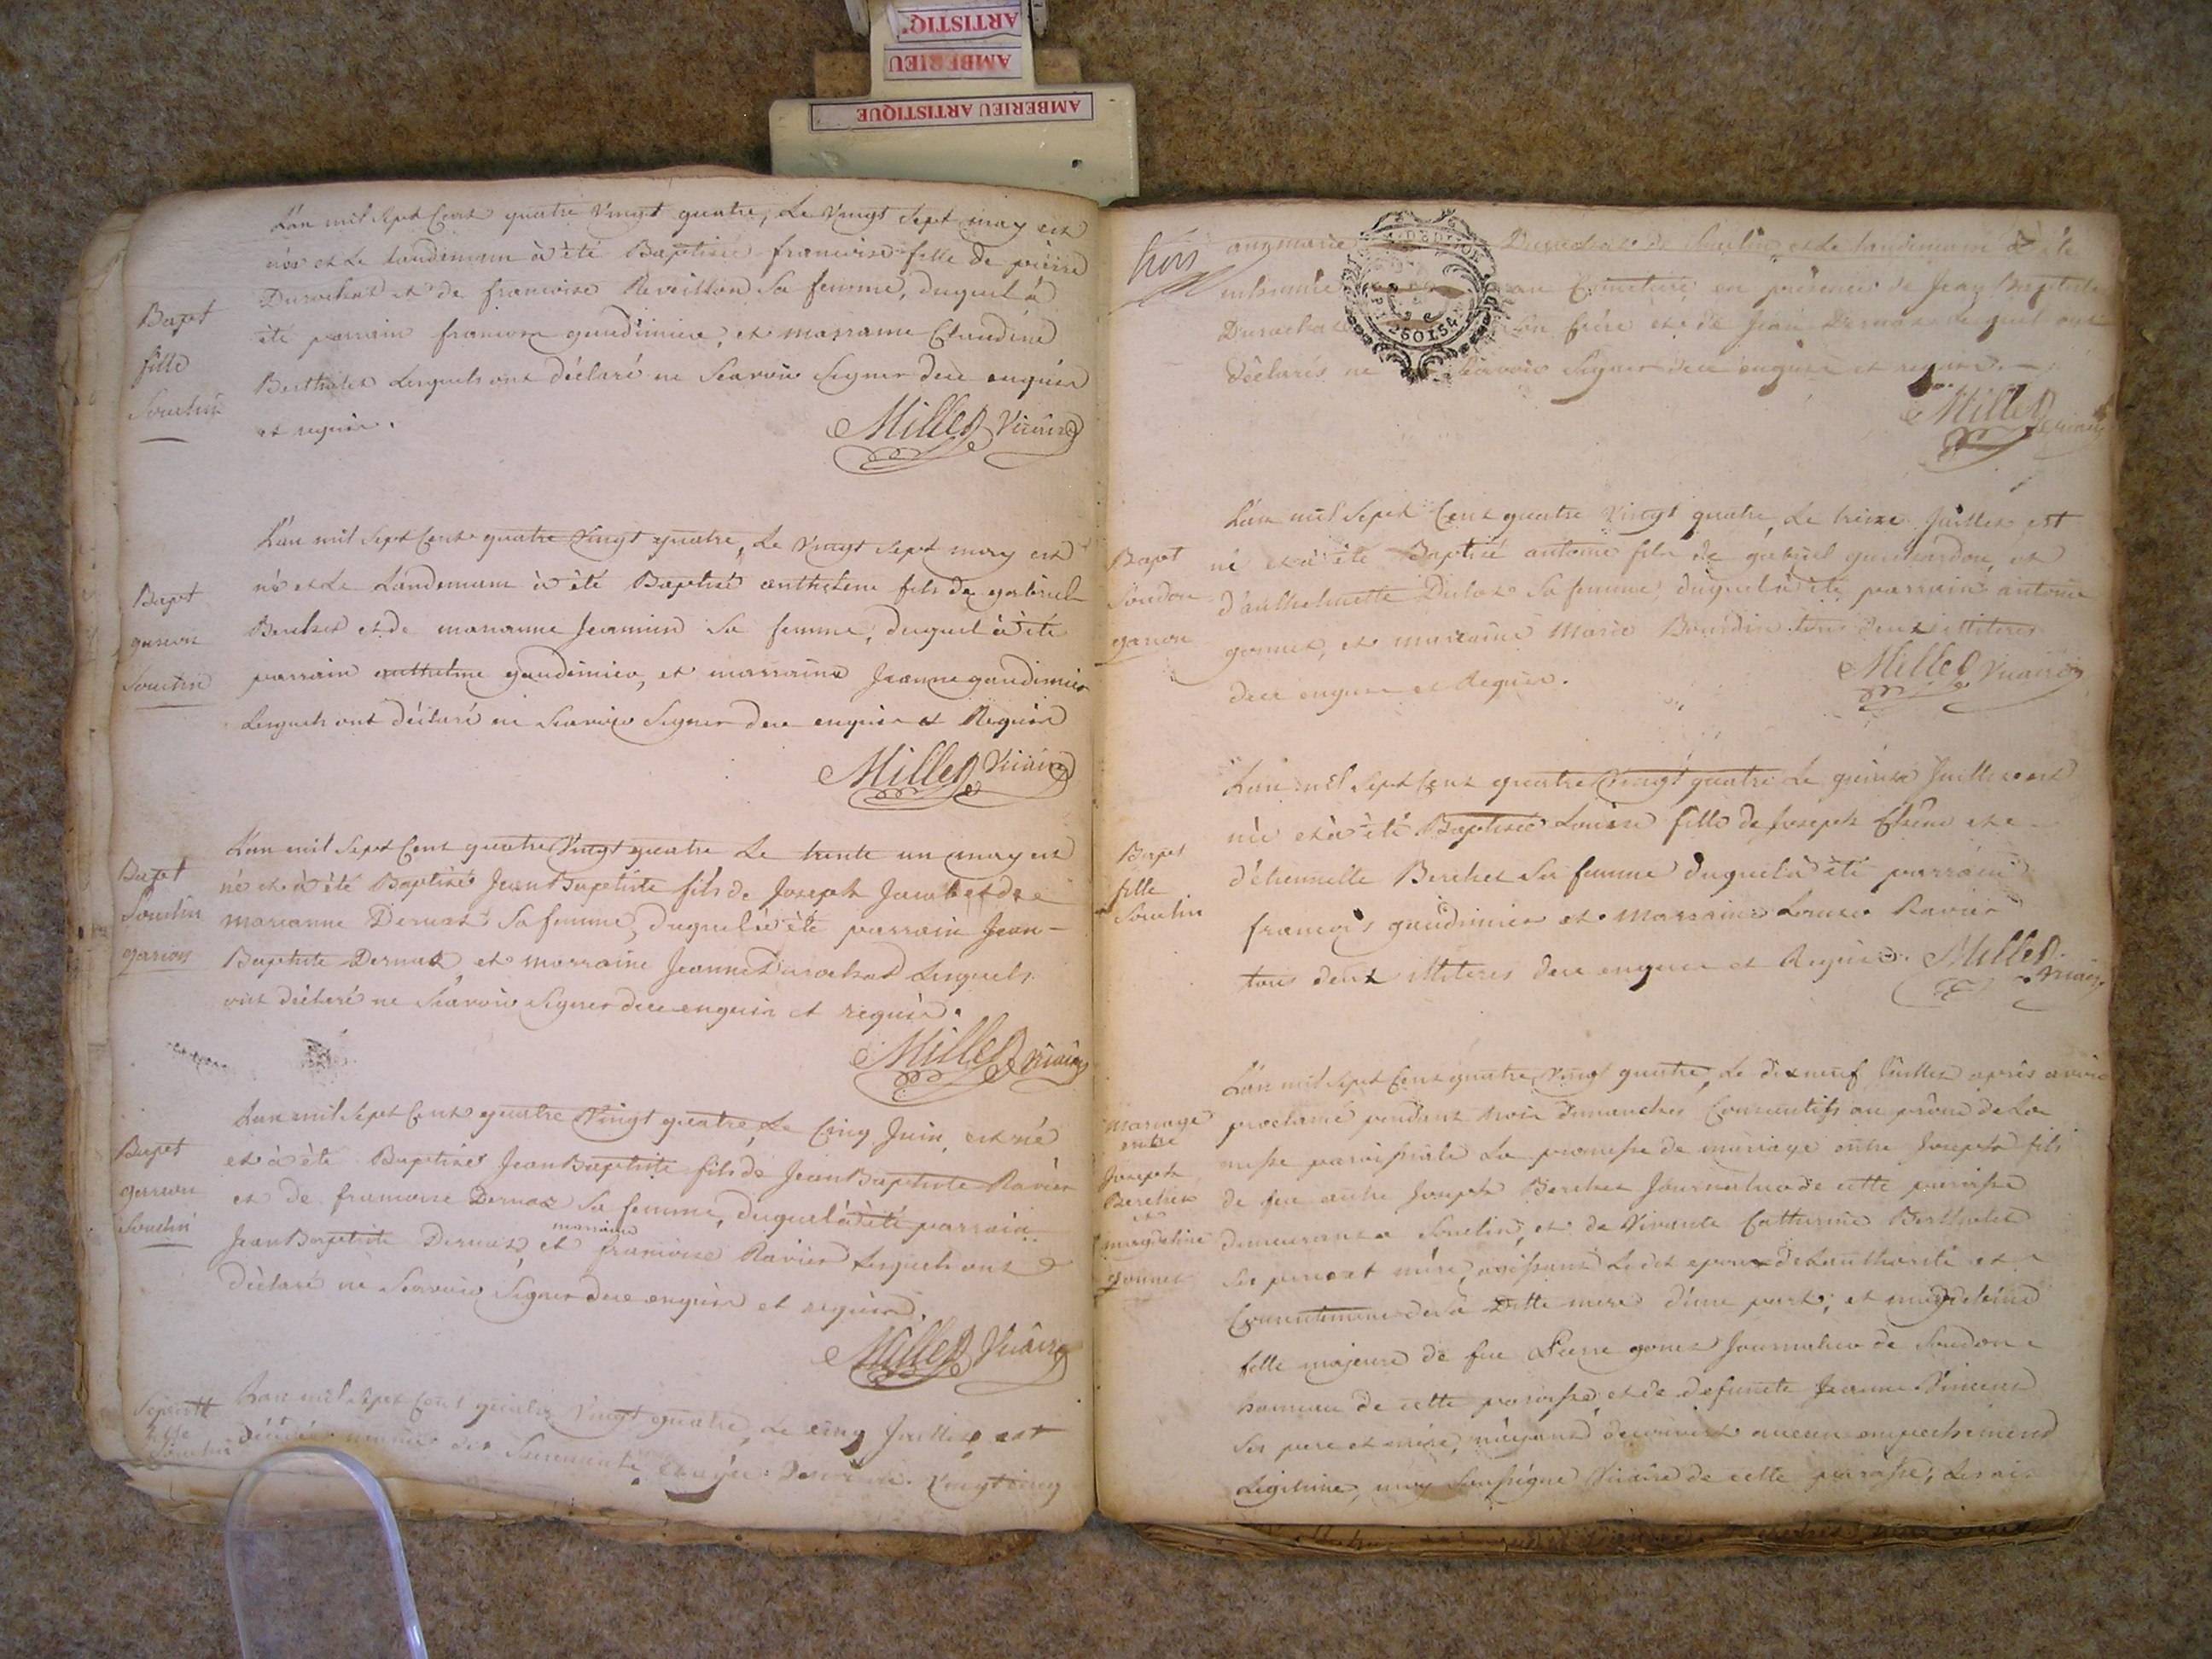 ARTISTIQ
AMBERIEU
AMBERIEU ARTISTIQUE
L'an mil Sept Cent quatre Vingt quatre, Le Vingt Sept may est
née et Le Landemain à été Baptisée francoise fille de pierre
Durochat et de francoise Reveillon Sa femme, duquel à
été parrain francois gaudimier, et marraine Claudine
Berthelet Lesquels ont déclaré ne Scavoir Signer dece enquis
et requis.
Bapt
fille
Souclin
Millet Vicaire
L'an mil Sept Cent quatre Vingt quatre, Le Vingt Sept may est
né et Le Landemain à été Baptisé anthelme fils de gabriel
Berchet et de marianne Sa femme, duquel à été
parrain anthelme gaudimier, et marraine Jeanne gaudimier
Lesquels ont déclaré ne Scavoir Signer dece enquis et Requis
Bapt
garcon
Souclin
Millet Vicaire
L'an mil Sept Cent quatre Vingt quatre Le trente un may est
né et à été Baptisé Jean Baptiste fils de Joseph et de
marianne Dernaz Sa femme, duquel à été parrain Jean
Baptiste Dernaz et marraine Jeanne Durochat Lesquels
ont déclaré ne Scavoir Signer dece enquis et requis.
Bapt
Souclin
garcon
Millet Vicaire
L'an mil Sept Cent quatre Vingt quatre, Le Cinq Juin est né
et à été Baptisé Jean Baptiste fils de Jean Baptiste Ravier
et de francoise Dernaz Sa femme, duquel à été parrain
Jean Baptiste Dernaz et marraine francoise Ravier Lesquels ont
déclaré ne Scavoir Signer dece enquis et requis.
Bapt
garcon
Souclin
Millet Vicaire
L'an mil Sept Cent quatre Vingt quatre, Le cinq Juillet est
décédée munie des Sacrements Vingt cinq
Souclin
trois
Durochat de Souclin et Le Landemain à été
inhumée au Cimetiere en présence de Jean Baptiste
Durochat Son frère et de Jean Dernaz Lesquels ont
déclarés ne Scavoir Signer dece enquis et requis.
Millet Vicaire
L'an mil Sept Cent quatre Vingt quatre, Le treize Juillet est
né et à été Baptisé antoine fils de gabriel et
d'anthelmette Sa femme, duquel à été parrain antoine
gonnet, et marraine Marie Bourdin tous deux illiteres
dece enquis et Requis.
Bapt
Soudon
garcon
Millet Vicaire
L'an mil Sept Cent quatre Vingt quatre Le quinze Juillet est
née et à été Baptisée Louise fille de Joseph et
d'étiennette Berchet Sa femme duquel à été parrain
francois gaudimier et Marraine Louise Ravier
tous deux illiteres dece enquis et Requis.
Bapt
fille
Souclin
Millet Vicaire
L'an mil Sept Cent quatre Vingt quatre, Le dixneuf Juillet après avoir
proclamé pendant trois dimanches Consecutifs au prône de La
messe paroissiale La promesse de mariage entre Joseph fils
de feu autre Joseph Berchet Journalier de cette paroisse
demeurant a Souclin, et de Vivante Catherine Berthelet
Ses pere et mère, agissant Le dit epoux de Lauthorité et
Consentement de Sa ditte mere d'une part; et magdeleine
fille majeure de feu Pierre gonet Journalier de Soudon
hameau de cette paroisse et de defuncte Jeanne Vincent
Ses pere et mère, n'ayant decouvert aucun empechement
Legitime, moy Soussigné Vicaire de cette paroisse,
mariage
entre
Joseph
Berchet
et
magdeleine
gonnet